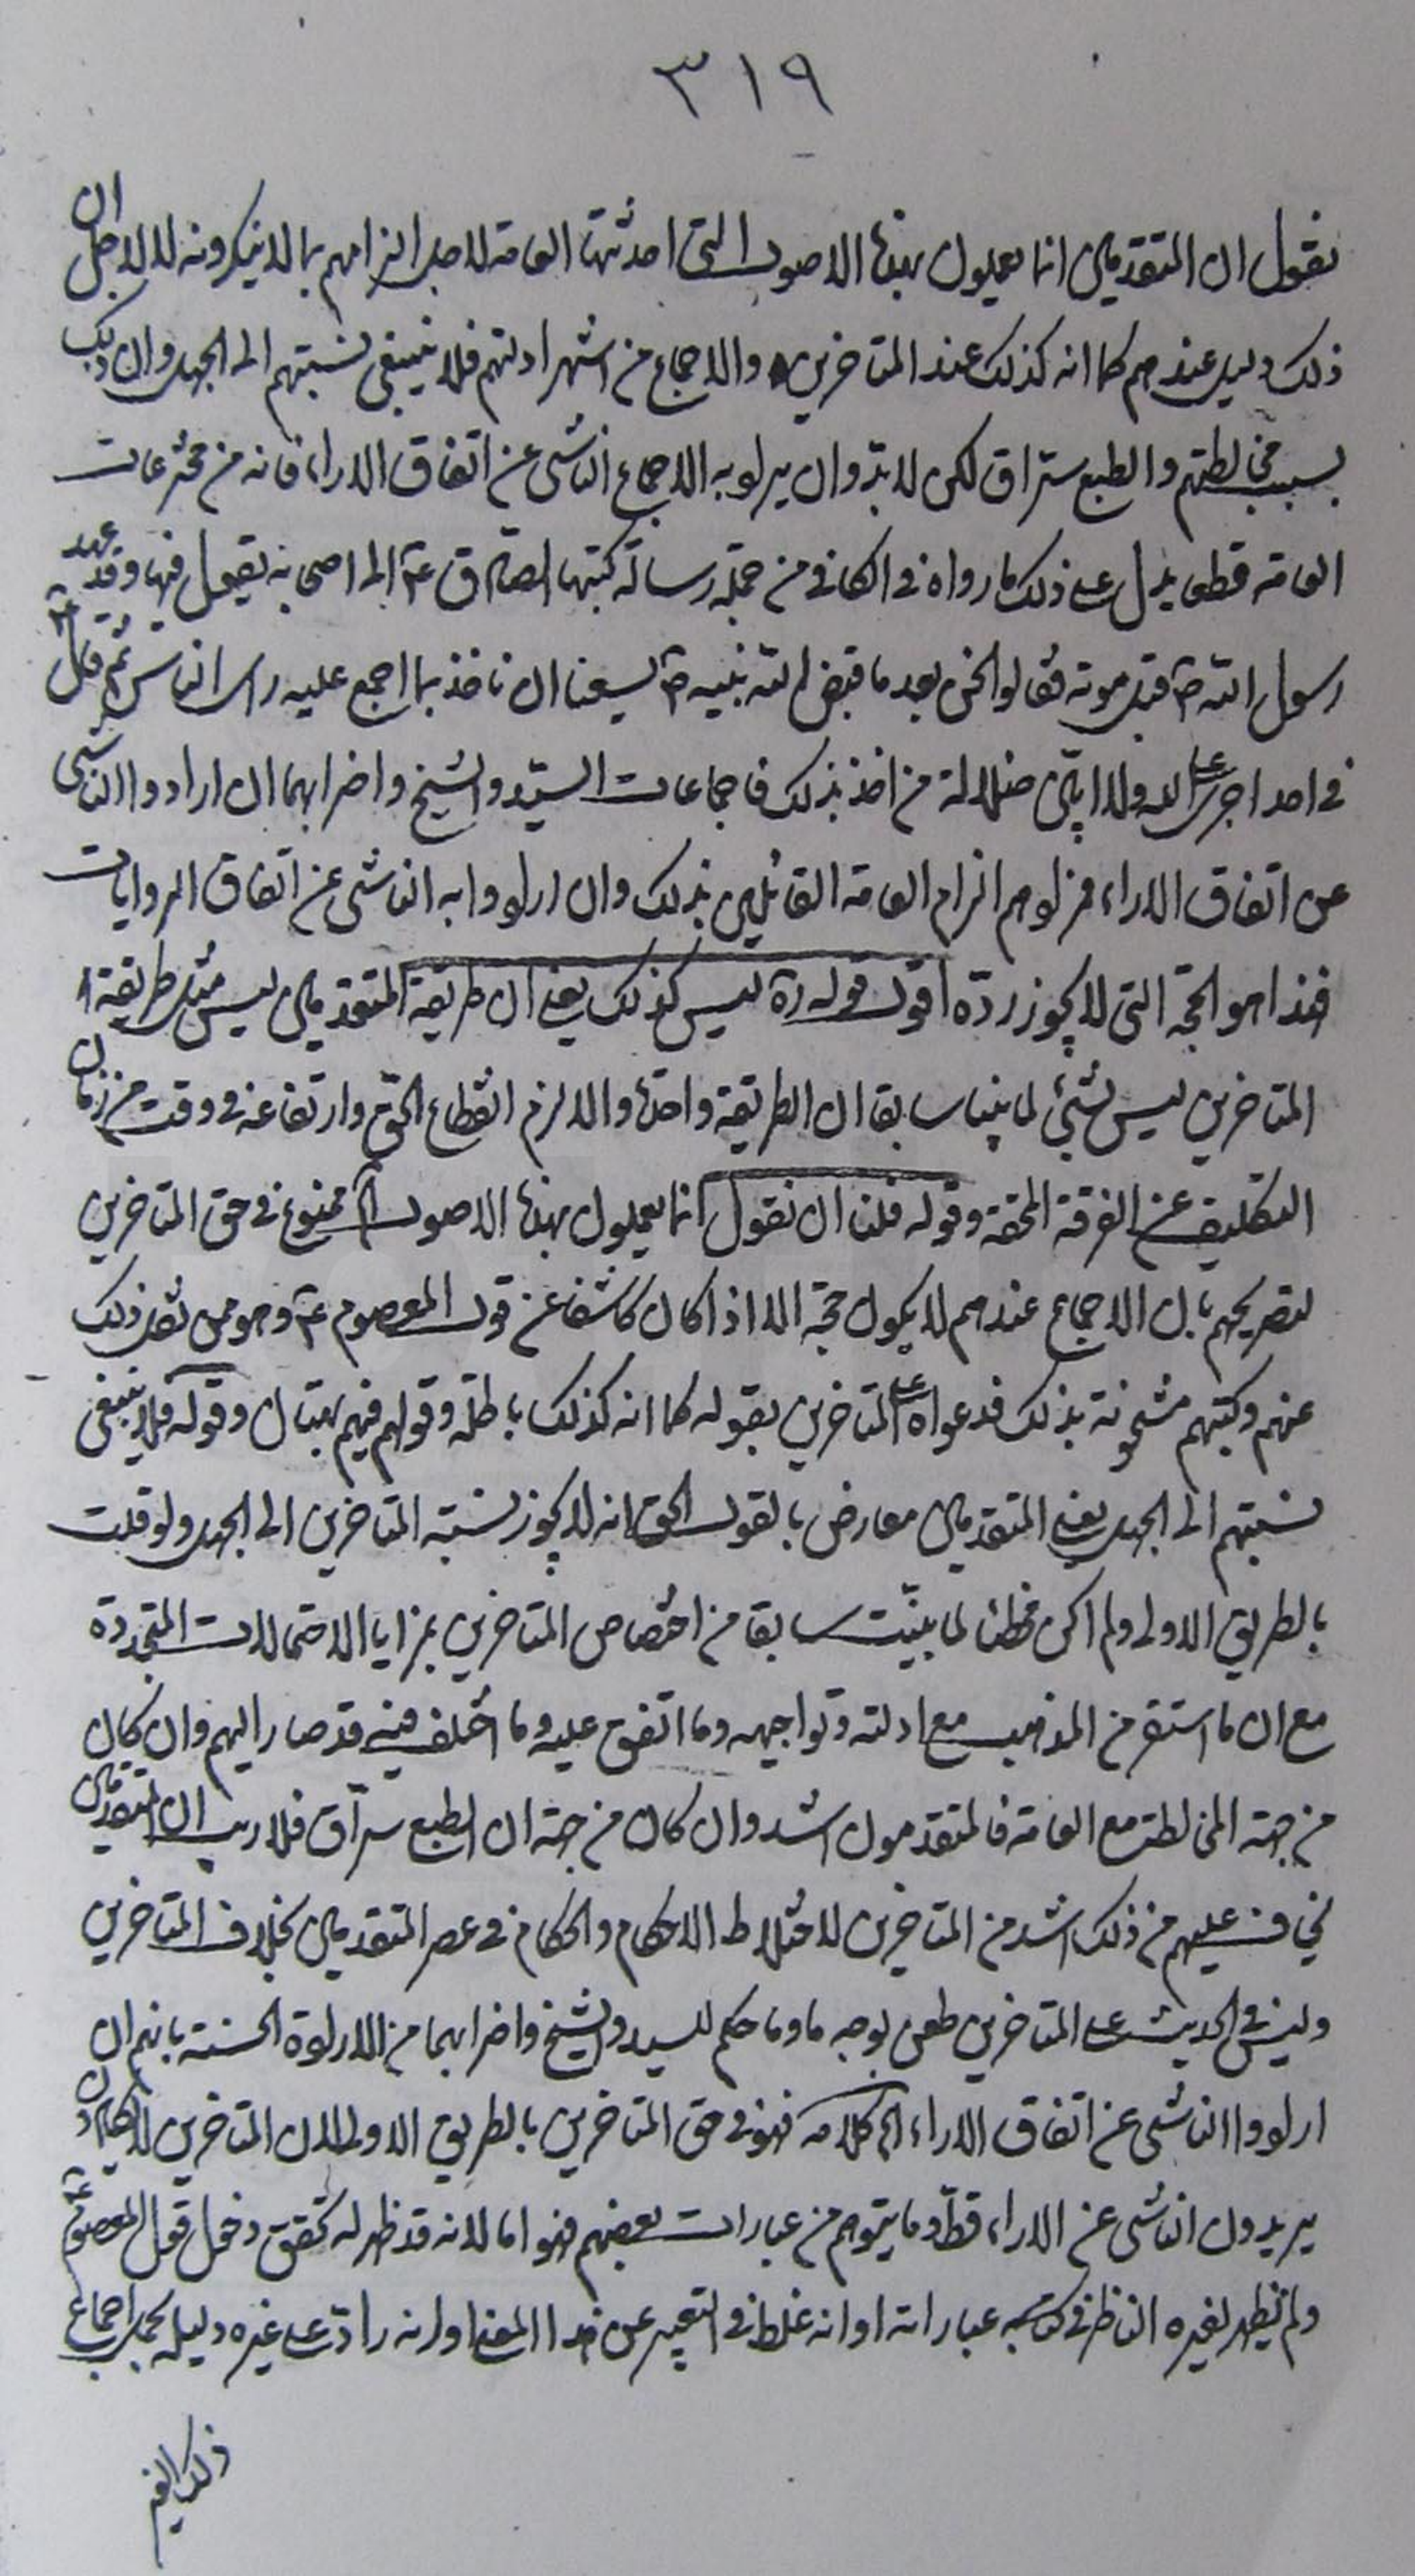 ٣١٩
نقول ان المتقدمين انما يعملون بهذه الاصول التى احدثتها العامة لاجل الزامهم بما لا ينكرونه لا لاجل ان
ذلك دليل عندهم كما انه كذلك عند المتاخرين والاجماع من اشهر ادلتهم فلا ينبغى نسبتهم الى الجهل وان ذلك
بسبب مخالطتهم والطبع سراق لكن لا بد وان يراد به الاجماع الناشى عن اتفاق الاراء فانه من مخترعات
العامة قطعا يدل على ذلك ما رواه فى الكافى من جملة رسالة كتبها الصادق ع الى اصحابه يقول فيها وقد عهد
رسول الله ص قبل موته فقالوا نحن بعد ما قبض الله نبيه ص يسعنا ان ناخذ بما اجمع عليه راى الناس ثم قال ع
فما احد اجرى على الله ولا ابين ضلالة من اخذ بذلك فاجماعات السيد والشيخ واضرابهما ان ارادوا الناشى
عن اتفاق الاراء فمرادهم الزام العامة القائلين بذلك وان ارادوا به الناشى عن اتفاق الروايات
فهذا هو الحجة التى لا يجوز رده اقول قوله ره ليس كذلك يعنى ان طريقة المتقدمين ليس مثل طريقة
المتاخرين ليس بشئ لما بينا سابقا ان الطريقة واحدة والا لزم انقطاع الحق وارتفاعه فى وقت من زمان
التكليف عن الفرقة المحقة وقوله فلنا ان نقول انما يعملون بهذه الاصول الخ ممنوع فى حق المتاخرين
لتصريحهم بان الاجماع عندهم لا يكون حجة الا اذا كان كاشفا عن قول المعصوم ع وهو ممن نقل ذلك
عنهم وكتبهم مشحونة بذلك فدعواه على المتاخرين بقوله كما انه كذلك باطلة وقولهم فيهم بهتان وقوله فلا ينبغى
نسبتهم الى الجهل يعنى المتقدمين معارض بالقول الحق انه لا يجوز نسبة المتاخرين الى الجهل ولو قلت
بالطريق الاولى ولم اكن مخطئا لما بينت سابقا من اختصاص المتاخرين بمزايا الاحتمالات المتجددة
مع ان ما استقر من المذهب مع ادلته وتواجيهه وما اتفق عليه وما اختلف فيه قد صار اليهم وان كان
من جهة المخالطة مع العامة فالمتقدمون اشد وان كان من جهة ان الطبع سراق فلا ريب ان المتقدمين
يخاف عليهم من ذلك اشد من المتاخرين لاختلاط الاحكام والحكام فى عصر المتقدمين بخلاف المتاخرين
وليس فى الحديث على المتاخرين طعن بوجه ما وما حكم للسيد والشيخ واضرابهما من الارادة الحسنة بانهم ان
ارادوا الناشى عن اتفاق الاراء الخ كلامه فهو فى حق المتاخرين بالطريق الاولى لان المتاخرين لا يكادون
يريدون الناشى عن الاراء قط وما يتوهم من عبارات بعضهم فهو اما لانه قد ظهر له تحقق دخول قول المعصوم ع
ولم يظهر لغيره الناظر فى كتبه عباراته او انه غلط فى التعبير عن هذا المعنى او انه راد على غيره دليله بمجرد اجماع
ذلك الغير